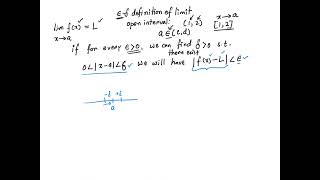 ε-δ definition of limit
lim f(x) = L
x→a
open interval: (1,2) x→a
a ∈ (c,d) [1,2]
if for every ε>0, we can find δ>0 s.t.
there exist
0<|x-a|<δ we will have |f(x)-L|<ε
-δ +δ
a